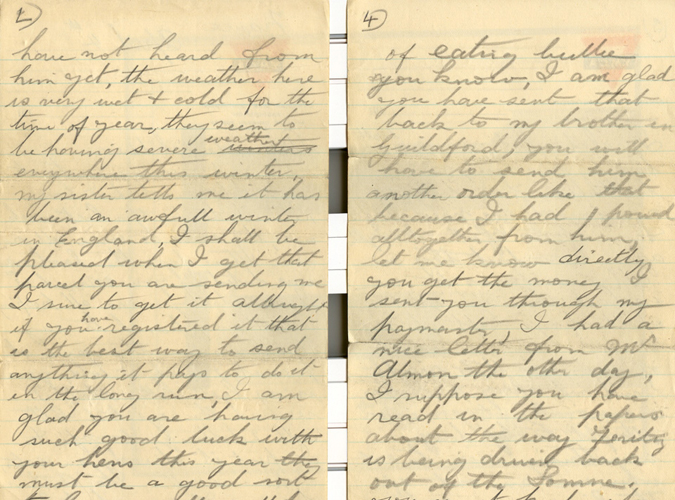 2)
have not heard from
him yet, the weather here
is very wet & cold for the
time of year, they seem to
be having severe weather winters
everywhere this winter,
my sister tells me it has
been an awfull winter
in England, I shall be
pleased when I get that
parcel you are sending me
I sure to get it allright
if you have registered it that
is the best way to send
anything it pays to do it
in the long run, I am
glad you are having
such good luck with
your hens this year they
must be a good sort
4)
of eating bullie
you know, I am glad
you have sent that
back to my brother in
Guildford, you will
have to send him
another order like that
because I had 1 pound
alltogether from him,
let me know directly
you get the money I
sent you through my
paymaster, I had a
nice letter from Mr
Almon the other day,
I suppose you have
read in the papers
about the way Feritz
is being driven back
out of the Somme,